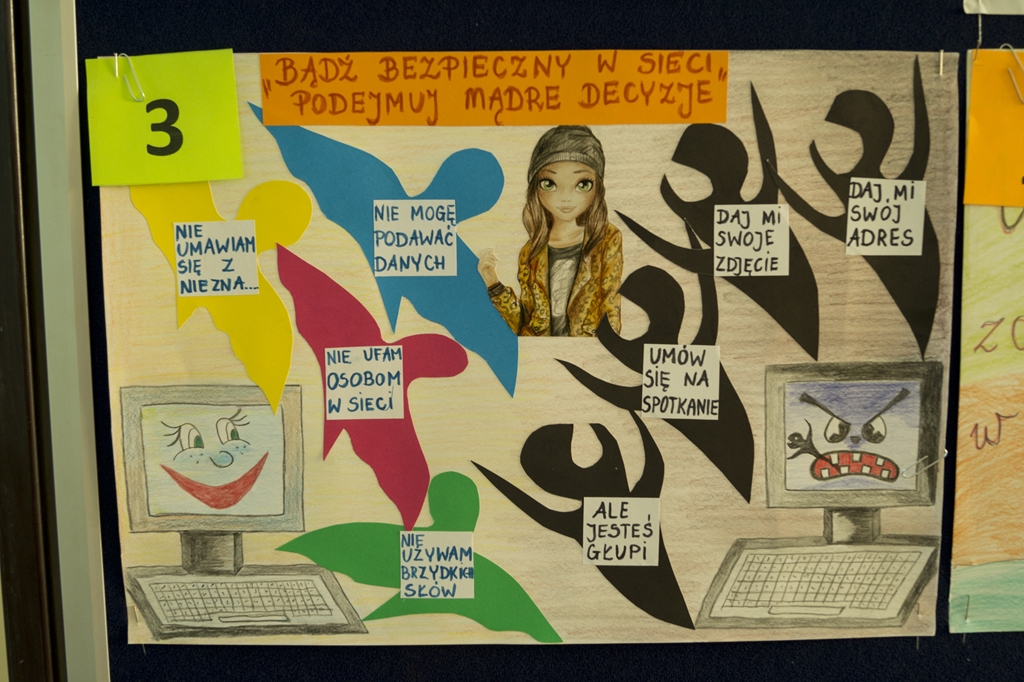 3
"BĄDŹ BEZPIECZNY W SIECI"
PODEJMUJ MĄDRE DECYZJE
NIE
UMAWIAM
SIĘ Z
NIEZNA...
NIE MOGĘ
PODAWAĆ
DANYCH
NIE UFAM
OSOBOM
W SIECI
NIE
UŻYWAM
BRZYDKICH
SŁÓW
DAJ MI
SWOJE
ZDJĘCIE
DAJ MI
SWÓJ
ADRES
UMÓW
SIĘ NA
SPOTKANIE
ALE
JESTEŚ
GŁUPI
W